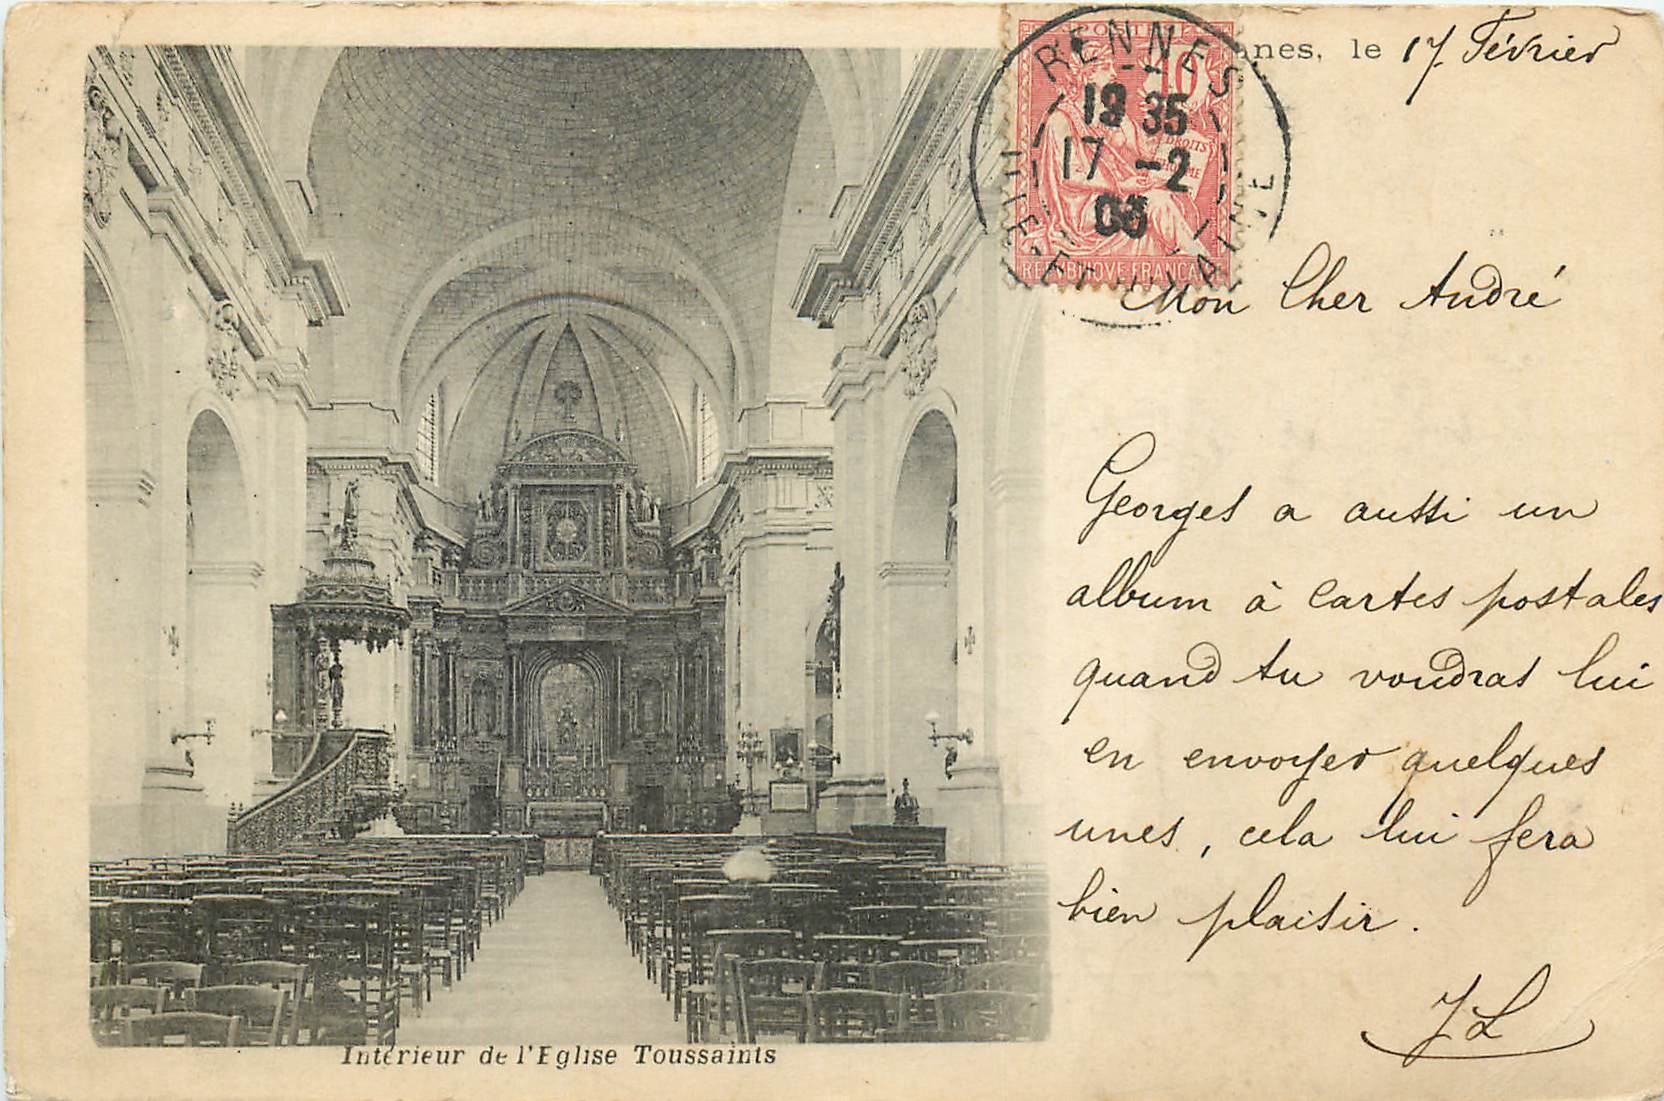 nnes, le 17 Février
RENNES
19 35
17 -2
03
ILLE-ET-VILAINE
10
DROITS
HOMME
Mon Cher André
Georges a aussi un
album à cartes postales
quand tu voudras lui
en envoyer quelques
unes, cela lui fera
bien plaisir.
JL
Intérieur de l'Eglise Toussaints